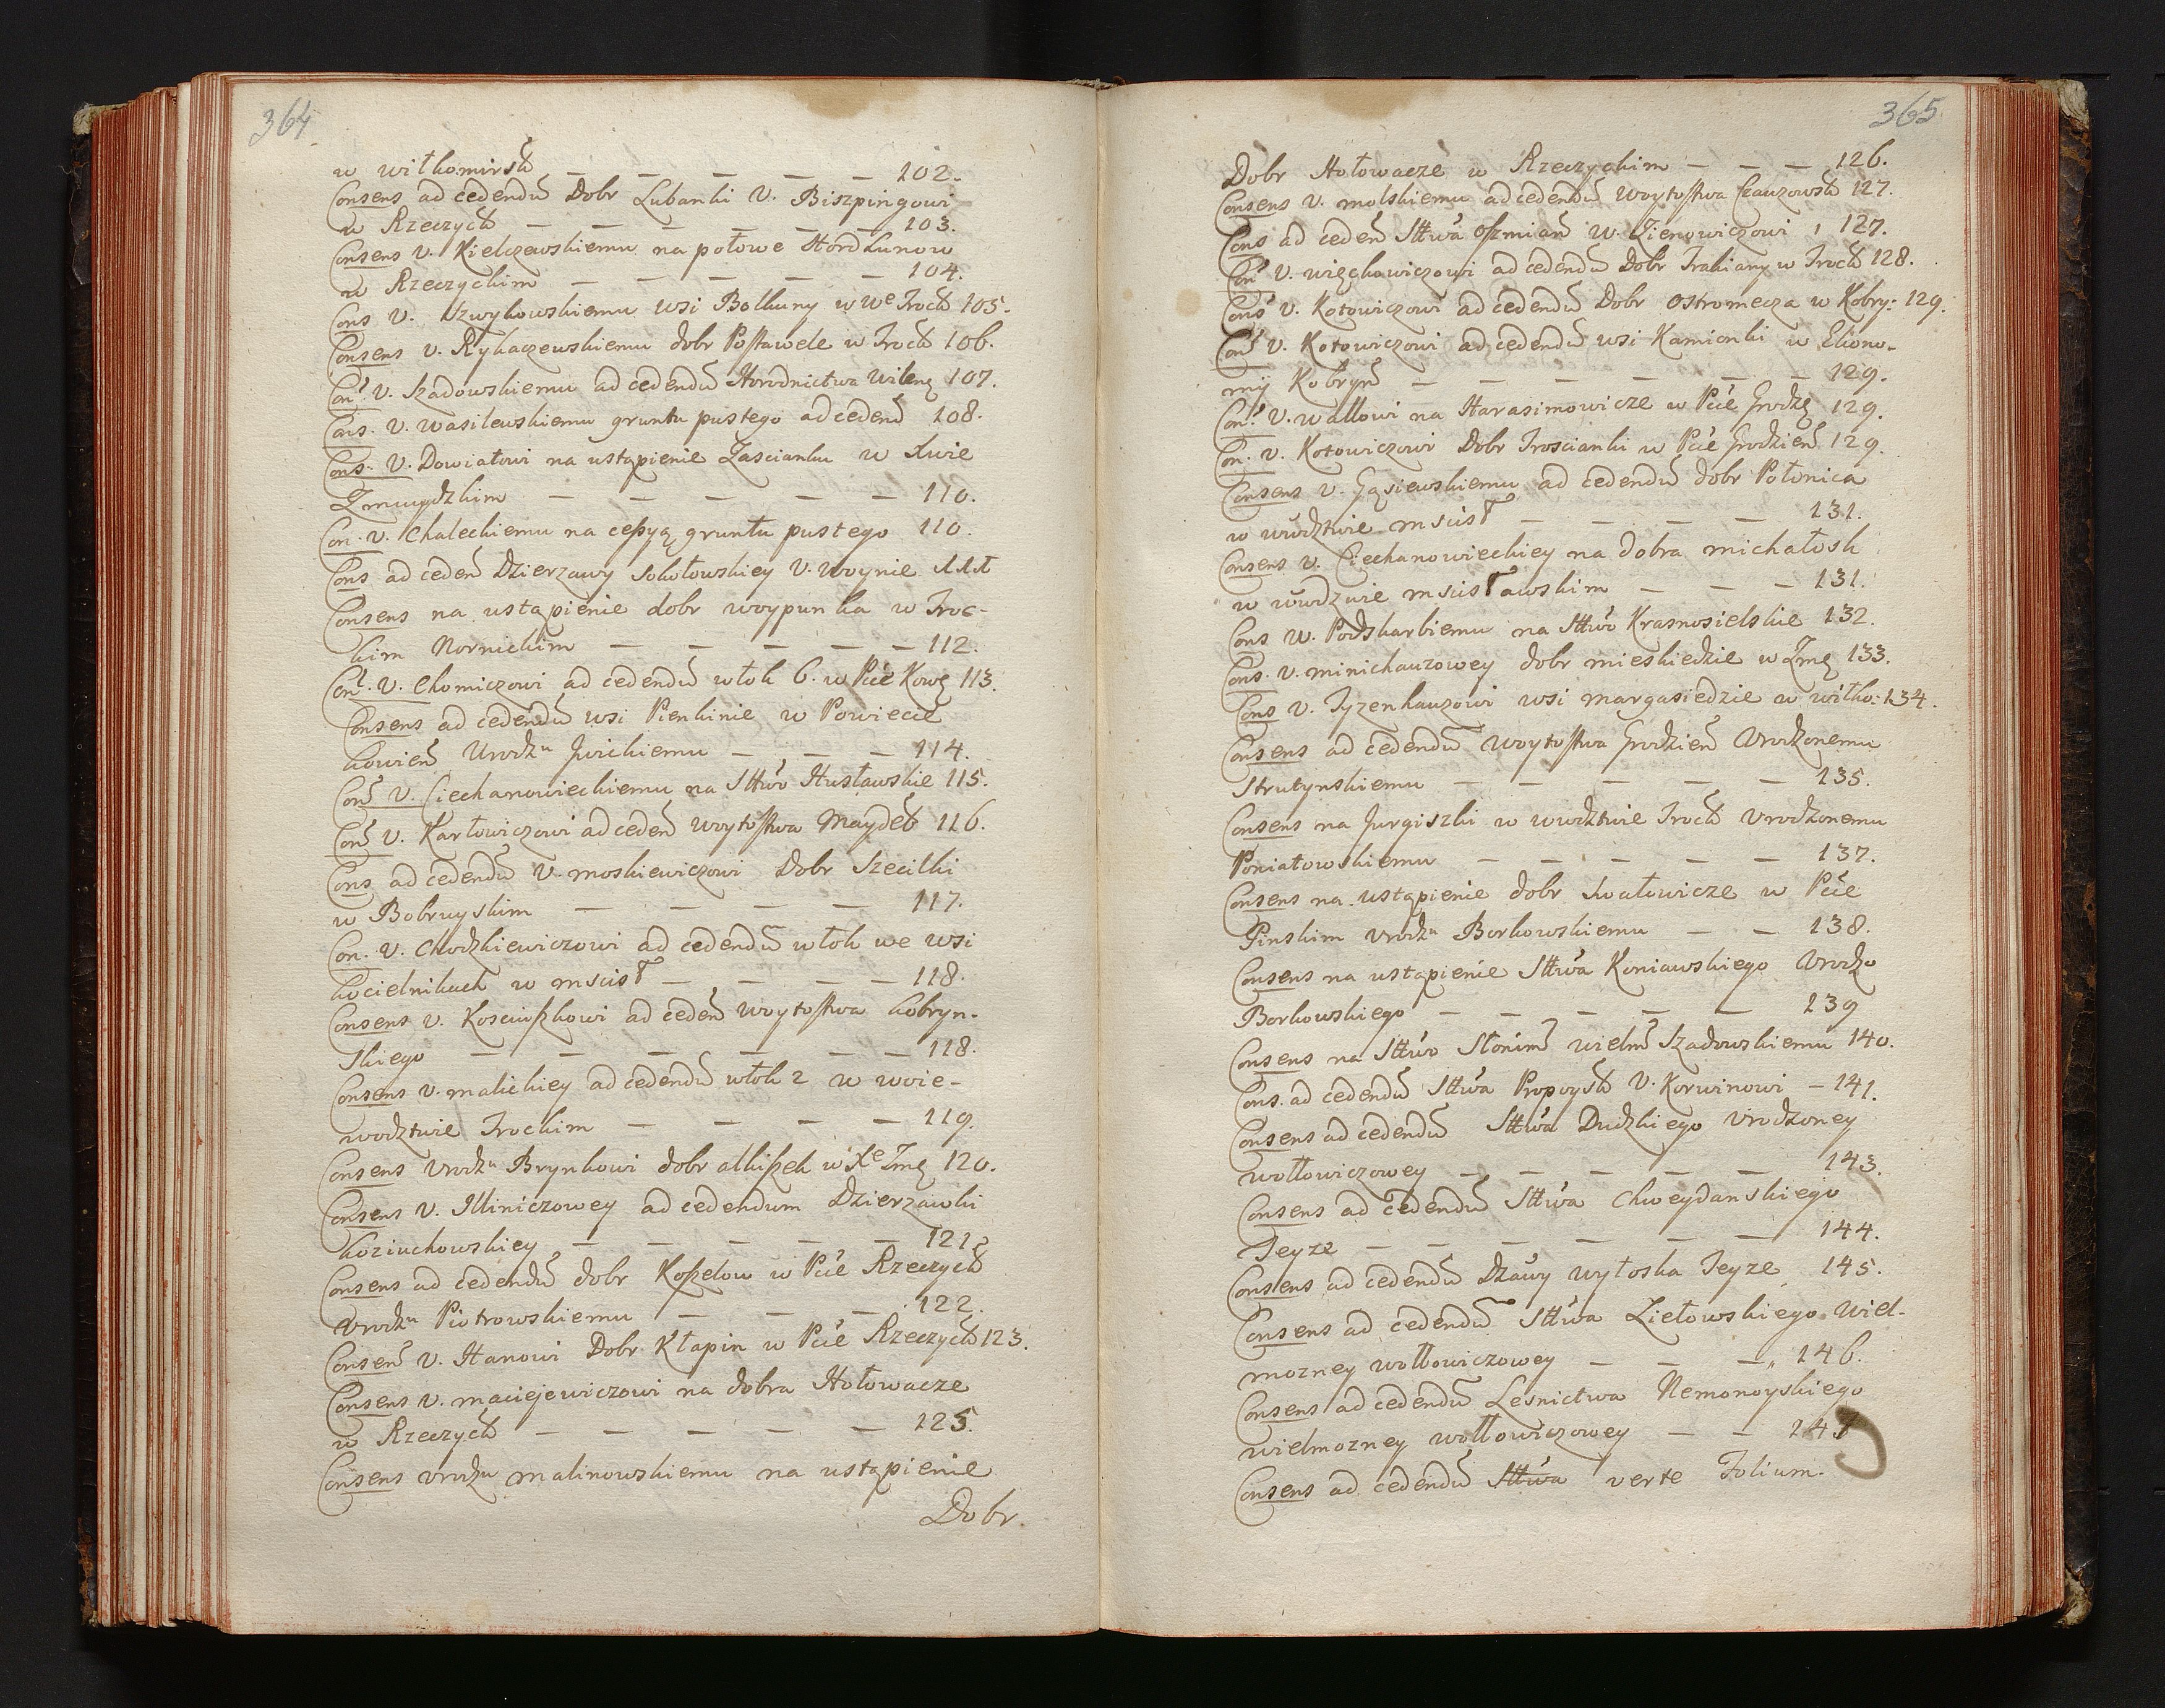 364.
w wiłkomirsk — — — — — 102.
Consens ad cedendũ Dobr Lubanki V. Biszpingowi
w Rzeczyck — — — — — 103.
Consens V. Kielczewskiemu na połowe Hordłunow
w Rzeczyckim — — — — — 104.
Cons V. Uzwykowskiemu wsi Bolkuny w We Trock 105.
Consens V. Rykaczewskiemu dobr Postawele w Trock 106.
Cons. V. Szadowskiemu ad cedendũ Horodnictwa Wileng 107.
Cons. V. Wasilewskiemu gruntu pustego ad cedend 108.
Cons. V. Dowiatowi na ustąpienie Zascianku w Xwie
Zmuydzkim — — — — — 110.
Con. V. Chaleckiemu na cessyą gruntu pustego 110.
Cons ad ceden Dzierzawy Sokołowskiey V. Woynie 111
Consens na ustąpienie dobr Woypunka w Troc-
kim Nornickim — — — — — 112.
Cons. V. Chomiczowi ad cedendũ włok 6. w Pcie Kowg 113.
Consens ad cedendũ wsi Pienkinie w Powiecie
kowień Urodzu Jwickiemu — — — 114.
Cons V. Ciechanowieckiemu na Sttwo Husławskie 115.
Cons V. Karłowiczowi ad ceden woytostwa Maydeb 116.
Cons ad cedendũ V. Moskiewiczowi Dobr Szecilki
w Bobruyskim — — — — 117.
Con. V. Chodzkiewiczowi ad cedendũ włok we wsi
kocielnikach w mscisł — — — — 118.
Consens V. Kosciuszkowi ad ceden woytostwa kobryn-
skiego — — — — — — 118.
Consens V. malickiey ad cedendũ włok 2 w woie-
wodztwie Trockim — — — — 119.
Consens Urodzu Brynkowi dobr alkiszek w Xe Zmg 120.
Consens V. Illiniczowey ad cedendum Dzierzawki
koziuchowskiey — — — — — 121.
Consens ad cedendũ dobr Koszelow w Pcie Rzeczyck
Urodzu Piotrowskiemu — — — 122.
Consens V. Hanowi Dobr Kłapin w Pcie Rzeczyck 123.
Consens V. maciejewiczowi na dobra Hołowacze
w Rzeczyck — — — — — 125.
Consens Urodzu malinowskiemu na ustąpienie
Dobr.
365
Dobr Hołowacze w Rzeczyckim — — — 126.
Consens V. molskiemu ad cedendũ woytostwa 127.
Cons ad ceden Sttwa Oszmiań W. Zienowiczowi 127.
Cons V. więckowiczowi ad cedendũ Dobr Trakiany w Trock 128.
Cons V. Kotowiczowi ad cedendũ Dobr Ostromecza w Kobry: 129.
Cons V. Kotowiczowi ad cedendũ wsi Kamionki w Ekono-
mij Kobryn — — — — — — 129.
Cons. V. wallowi na Harasimowicze w Pcie Grodzg 129.
Con. V. Kotowiczowi Dobr Troscianki w Pcie Grodzień 129.
Consens V. Gąsiewskiemu ad cedendũ dobr Połonica
w wwdztwie mscisł — — — — 131.
Consens V. Ciechanowieckiey na dobra michałosk
w wwdzwie mscisławskim — — — 131.
Cons W. Podskarbiemu na Sttwo Krasnosielskie 132.
Cons. V. minichauzowey dobr mieskiedzie w Zmg 133.
Cons V. Tyzenhauzowi wsi margasiedzie w wiłko: 134.
Consens ad cedendũ Woytostwa Grodzień Urodzonemu
Strutynskiemu — — — — — 135.
Consens na Jurgiszki w wwdztwie Trock Urodzonemu
Poniatowskiemu — — — — — 137.
Consens na ustąpienie dobr Swałowicze w Pcie
Pinskim Urodzu Borkowskiemu — — 138.
Consens na ustąpienie Sttwa Koniawskiego Urodzo
Borkowskiego — — — — — 139
Consens na Sttwo Słonim wielm Szadowskiemu 140.
Cons. ad cedendũ Sttwa Propoysk V. Korwinowi — 141.
Consens ad cedendũ Sttwa Dudzkiego Urodzoney
wołłowiczowey — — — — — 143.
Consens ad cedendũ Sttwa Chweydanskiego
Teyze — — — — — — 144.
Consens ad cedendũ Dzawy wytoska Teyze 145.
Consens ad cedendũ Sttwa Zietowskiego wiel-
mozney wołłowiczowey — — — 146.
Consens ad cedendũ Lesnictwa Nemonoyskiego
wielmozney wołłowiczowey — — 147
Consens ad cedendũ Sttwa verte Folium.